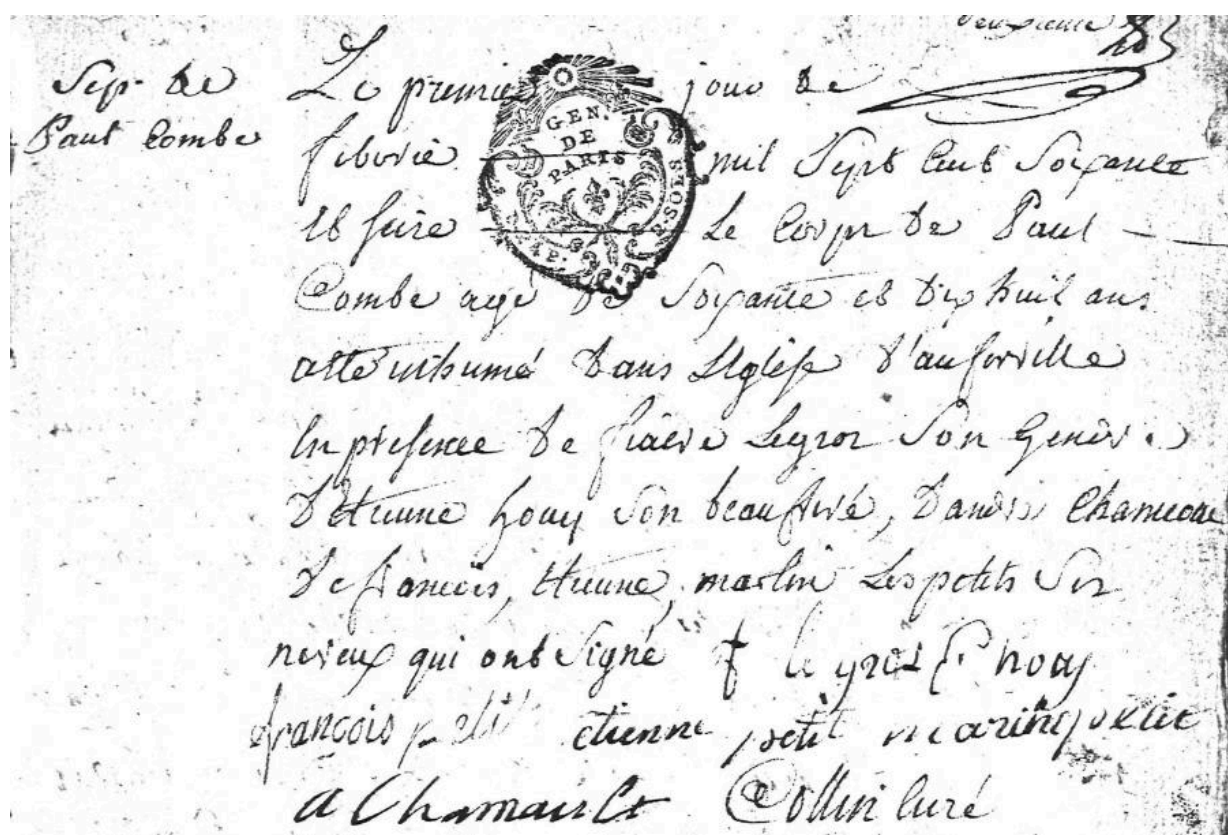 deuxieme
Sep. de
Paul Combe
Le premier jour de
fevrié mil Sept Cent Soixante
et seize Le Corps de Paul
Combe agé de Soixante et Dix huit ans
atté inhumé dans Leglise d'auferville
En presence de fiacre Legros Son Gendre
d'etienne houy Son beaufrere, d'andré Chamault
de francois, etienne, martin Les petits Ses
neveux qui ont Signé f le gros E houy
françois petit etienne petit marin petit
a Chamault Collin Curé
GEN.
DE
PARIS
2 SOLS